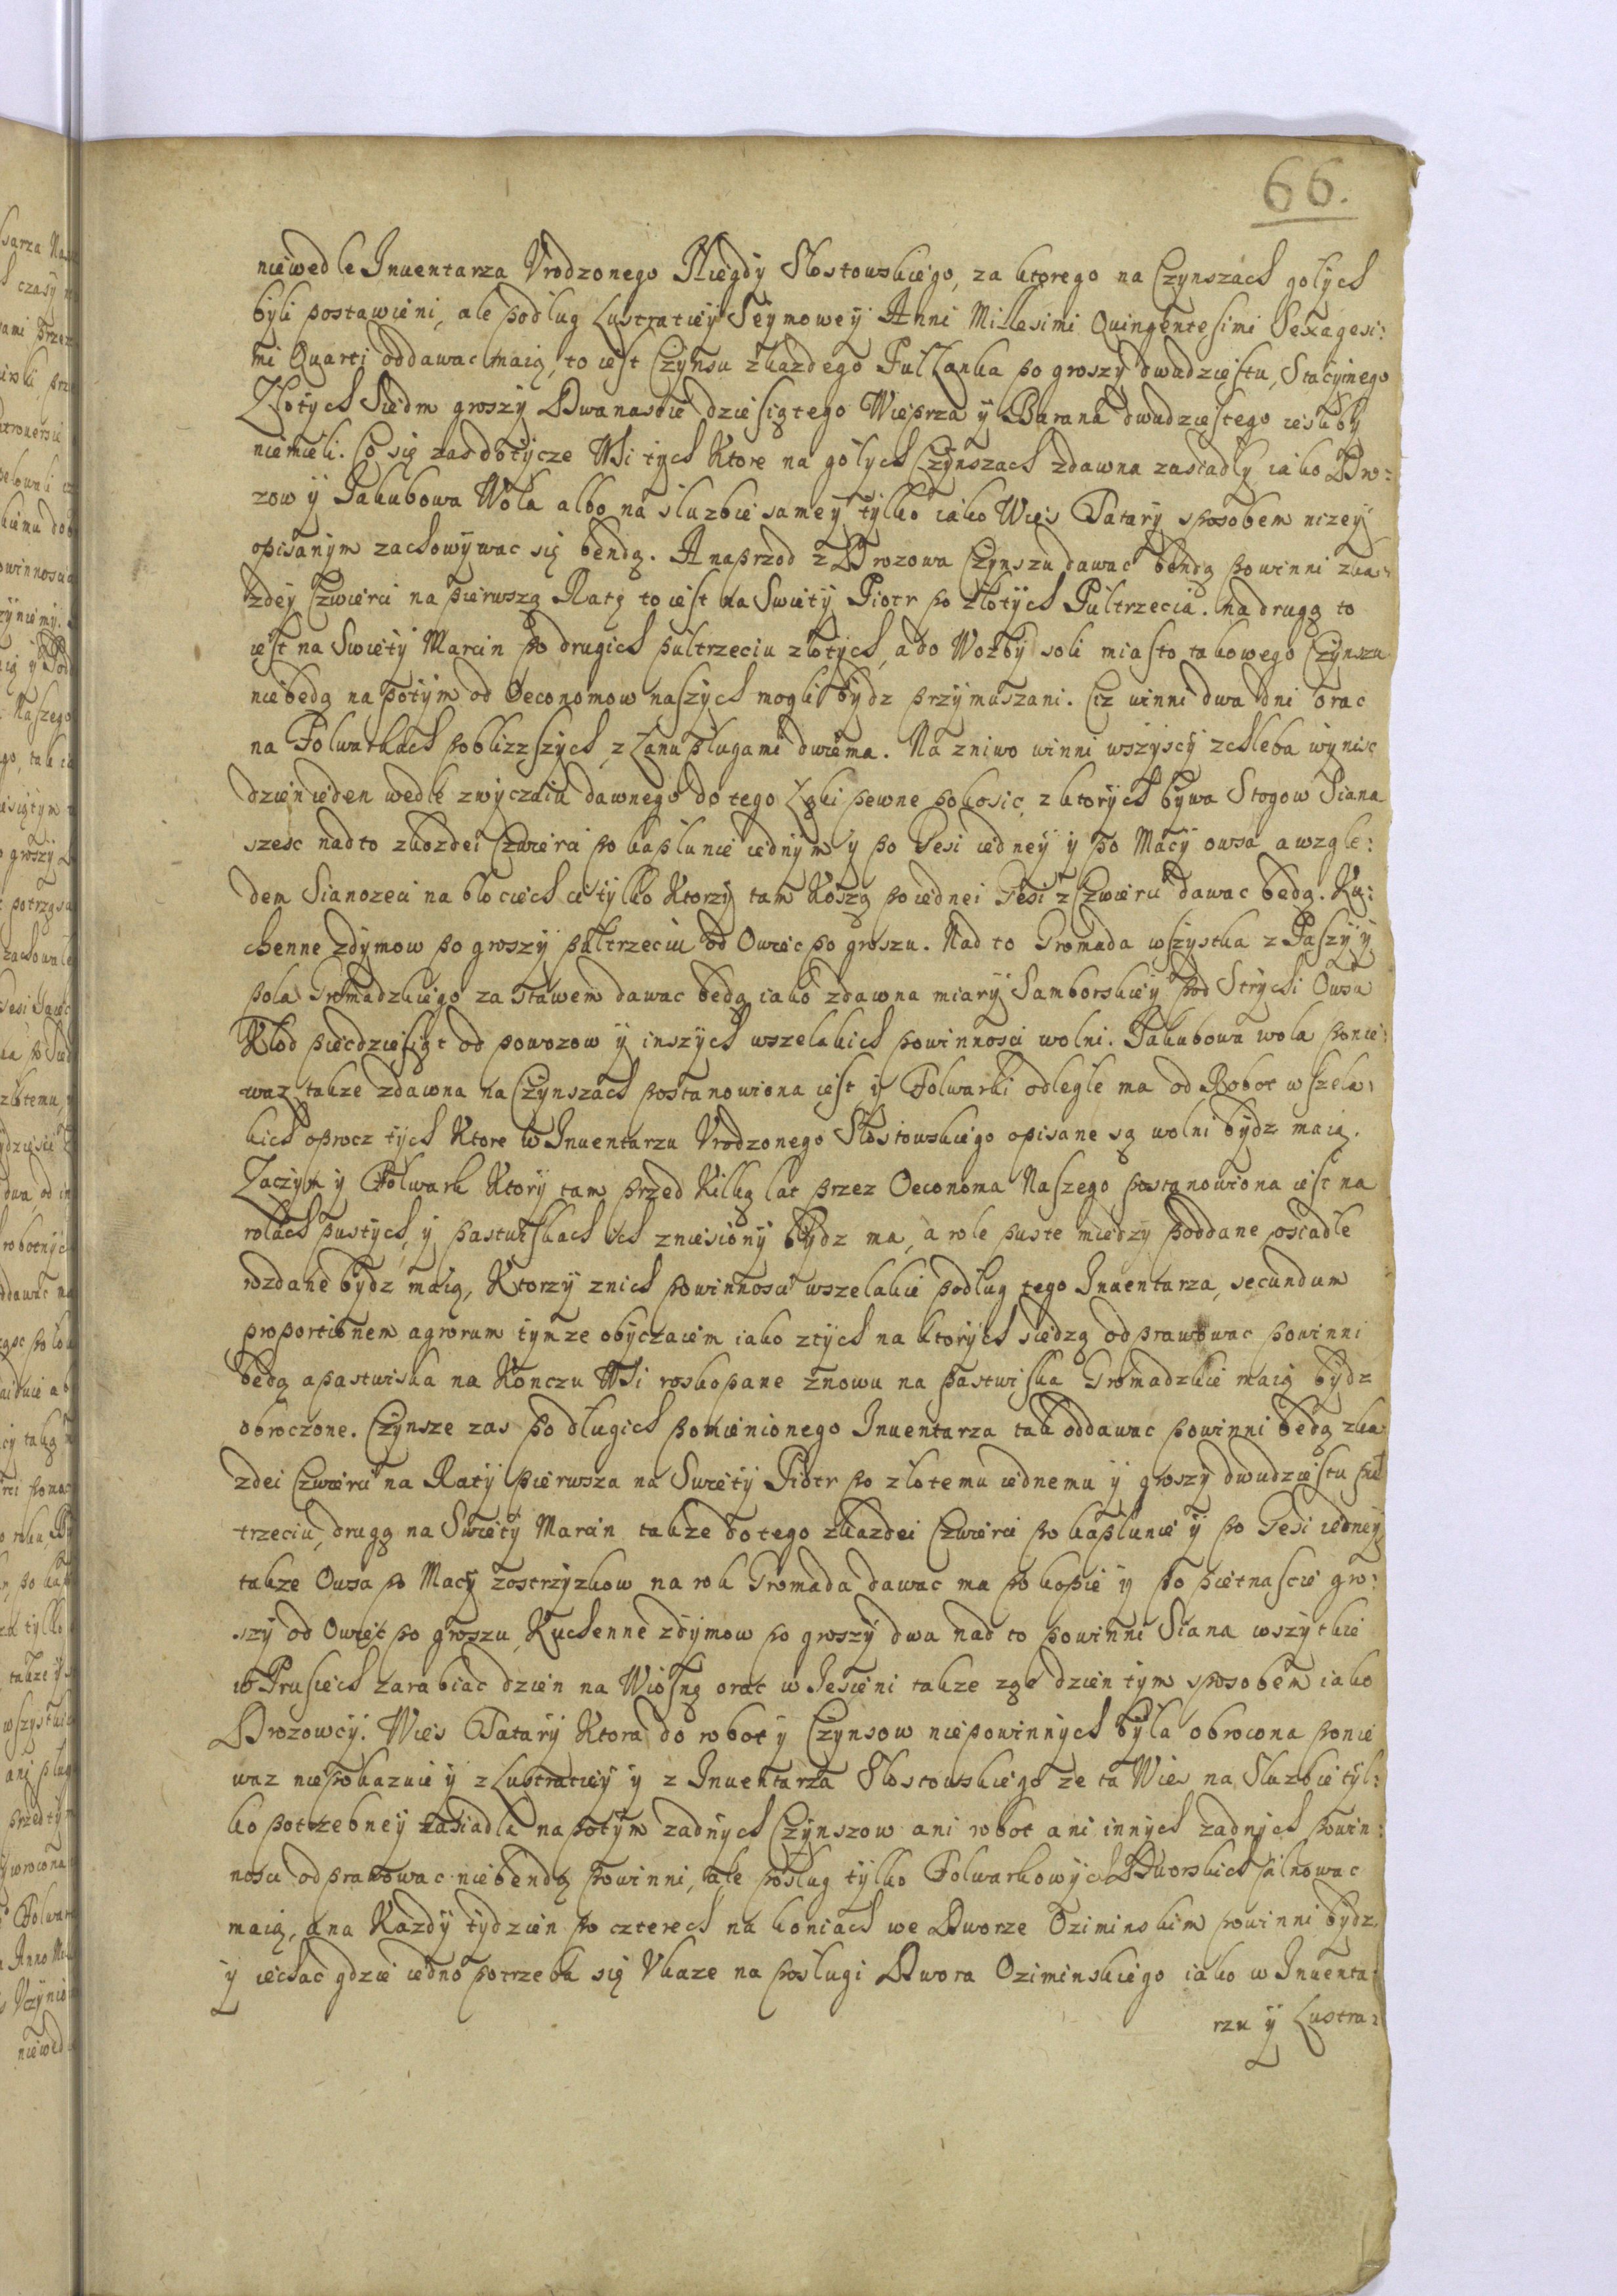 66.
niewedle Inuentarza Vrodzonego Niegdy Słostowskiego, za ktorego na Czynszach gołych
byli postawieni, ale podlug Lustratiey Seymowey Anni Millesimi Quingentesimi Sexagesi:
mi Quarti oddawac maią, to iest Czynsu zkazdego Pułłanka po groszy dwudziestu, Stacyinego
Złotych Siedm groszy Dwanascie dziesiątego Wieprza y Barana dwudziestego iesliby
niemieli. Co się zas dotycze Wsi tych Ktore na gołych Czynszach zdawna zasiadły iako Dro:
zow y Iakubowa Wola albo na słuzbie samey tylko iako Wies Tatary sposobem nizey
opisanym zachowywac się bendą. A naprzod z Drozowa Czynszu dawac bendą powinni zka:
zdey Czwierci na pierwszą Ratę to iest na Swiety Piotr po złotych Pułtrzecia. na drugą to
iest na Swiety Marcin po drugich pułtrzeciu złotych, a do Wozby soli miasto takowego Czynszu
niebedą napotym od Oeconomow naszych mogli bydz przymuszani. Ciz winni dwa dni orac
na Folwarkach poblizzszych, z Łanu pługami dwiema. Na zniwo winni wszyscy zchleba wynisc
dzien ieden wedle zwyczaiu dawnego do tego Łąki pewne pokosic z ktorych bywa Stogow Siana
szesc nadto zkozdei Czwierci po kapłunie iednym y po Gesi iedney y po Macy owsa a wzgle:
dem Sianozeci na błociech ci tylko Ktorzy tam Koszą po iednei Gesi z Czwierci dawac bedą. Ku:
chenne zdymow po groszy pułtrzeciu od Owiec po groszu. Nad to Gromada wszystka z Paszy y
pola Gromadzkiego za Stawem dawac bedą iako zdawna miary Samborskiey pod Strychi Owsa
Kłod piecdziesiąt od powozow y inszych wszelakich powinnosci wolni. Iakubowa wola ponie:
waz takze zdawna na Czynszach postanowiona iest y Folwarki odległe ma od Robot wszela:
kich oprocz tych Ktore w Inuentarzu Vrodzonego Słostowskiego opisane są wolni bydz maią.
Zaczym y Folwark Ktory tam przed Kilką lat przez Oeconoma Naszego postanowiona iest na
rolach pustych, y pastwiskach ich zniesiony bydz ma, a role puste miedzy poddane osiadłe
rozdane bydz maią, Ktorzy znich powinnosci wszelakie podlug tego Inuentarza, secundum
proportionem agrorum tymze obyczaiem iako ztych na ktorych siedzą odprawowac powinni
bedą a pastwiska na Konczu Wsi roskopane znowu na pastwiska Gromadzkie maią bydz
obroczone. Czynsze zas po dlugich pomienionego Inuentarza tak oddawac powinni bedą zka
zdei Czwierci na Raty pierwsza na Swiety Piotr po złotemu iednemu y groszy dwudziestu puł
trzeciu, drugą na Swiety Marcin takze do tego zkazdei Czwierci po kapłunie y po Gesi iedney
takze Owsa po Macy zostrzyzkow na rok Gromada dawac ma po kopie y po pietnascie gro:
szy od Owiec po groszu Kuchenne zdymow po groszy dwa nad to powinni Siana wszytkie
w Prusiech zarabiac dzien na Wiosnę orac w Iesieni takze zas dzien tym sposobem iako
Drozowcy. Wies Tatary Ktora do robot y Czynsow niepowinnych była obrocona ponie
waz niepokazuie y z Lustratiey y z Inuentarza Słostowskiego ze ta Wies na Słuzbie tyl:
ko potrzebney zasiadła napotym zadnych Czynszow ani robot ani innych zadnych powin:
nosci odprawowac niebendą powinni, ale posług tylko Folwarkowych Dworskich pilnowac
maią, a na Kazdy tydzien po czterech na koniach we Dworze Oziminskim powinni bydz
y iechac gdzie iedno potrzeba się Vkaze na posługi Dwora Oziminskiego iako w Inuenta:
rzu y Lustra: